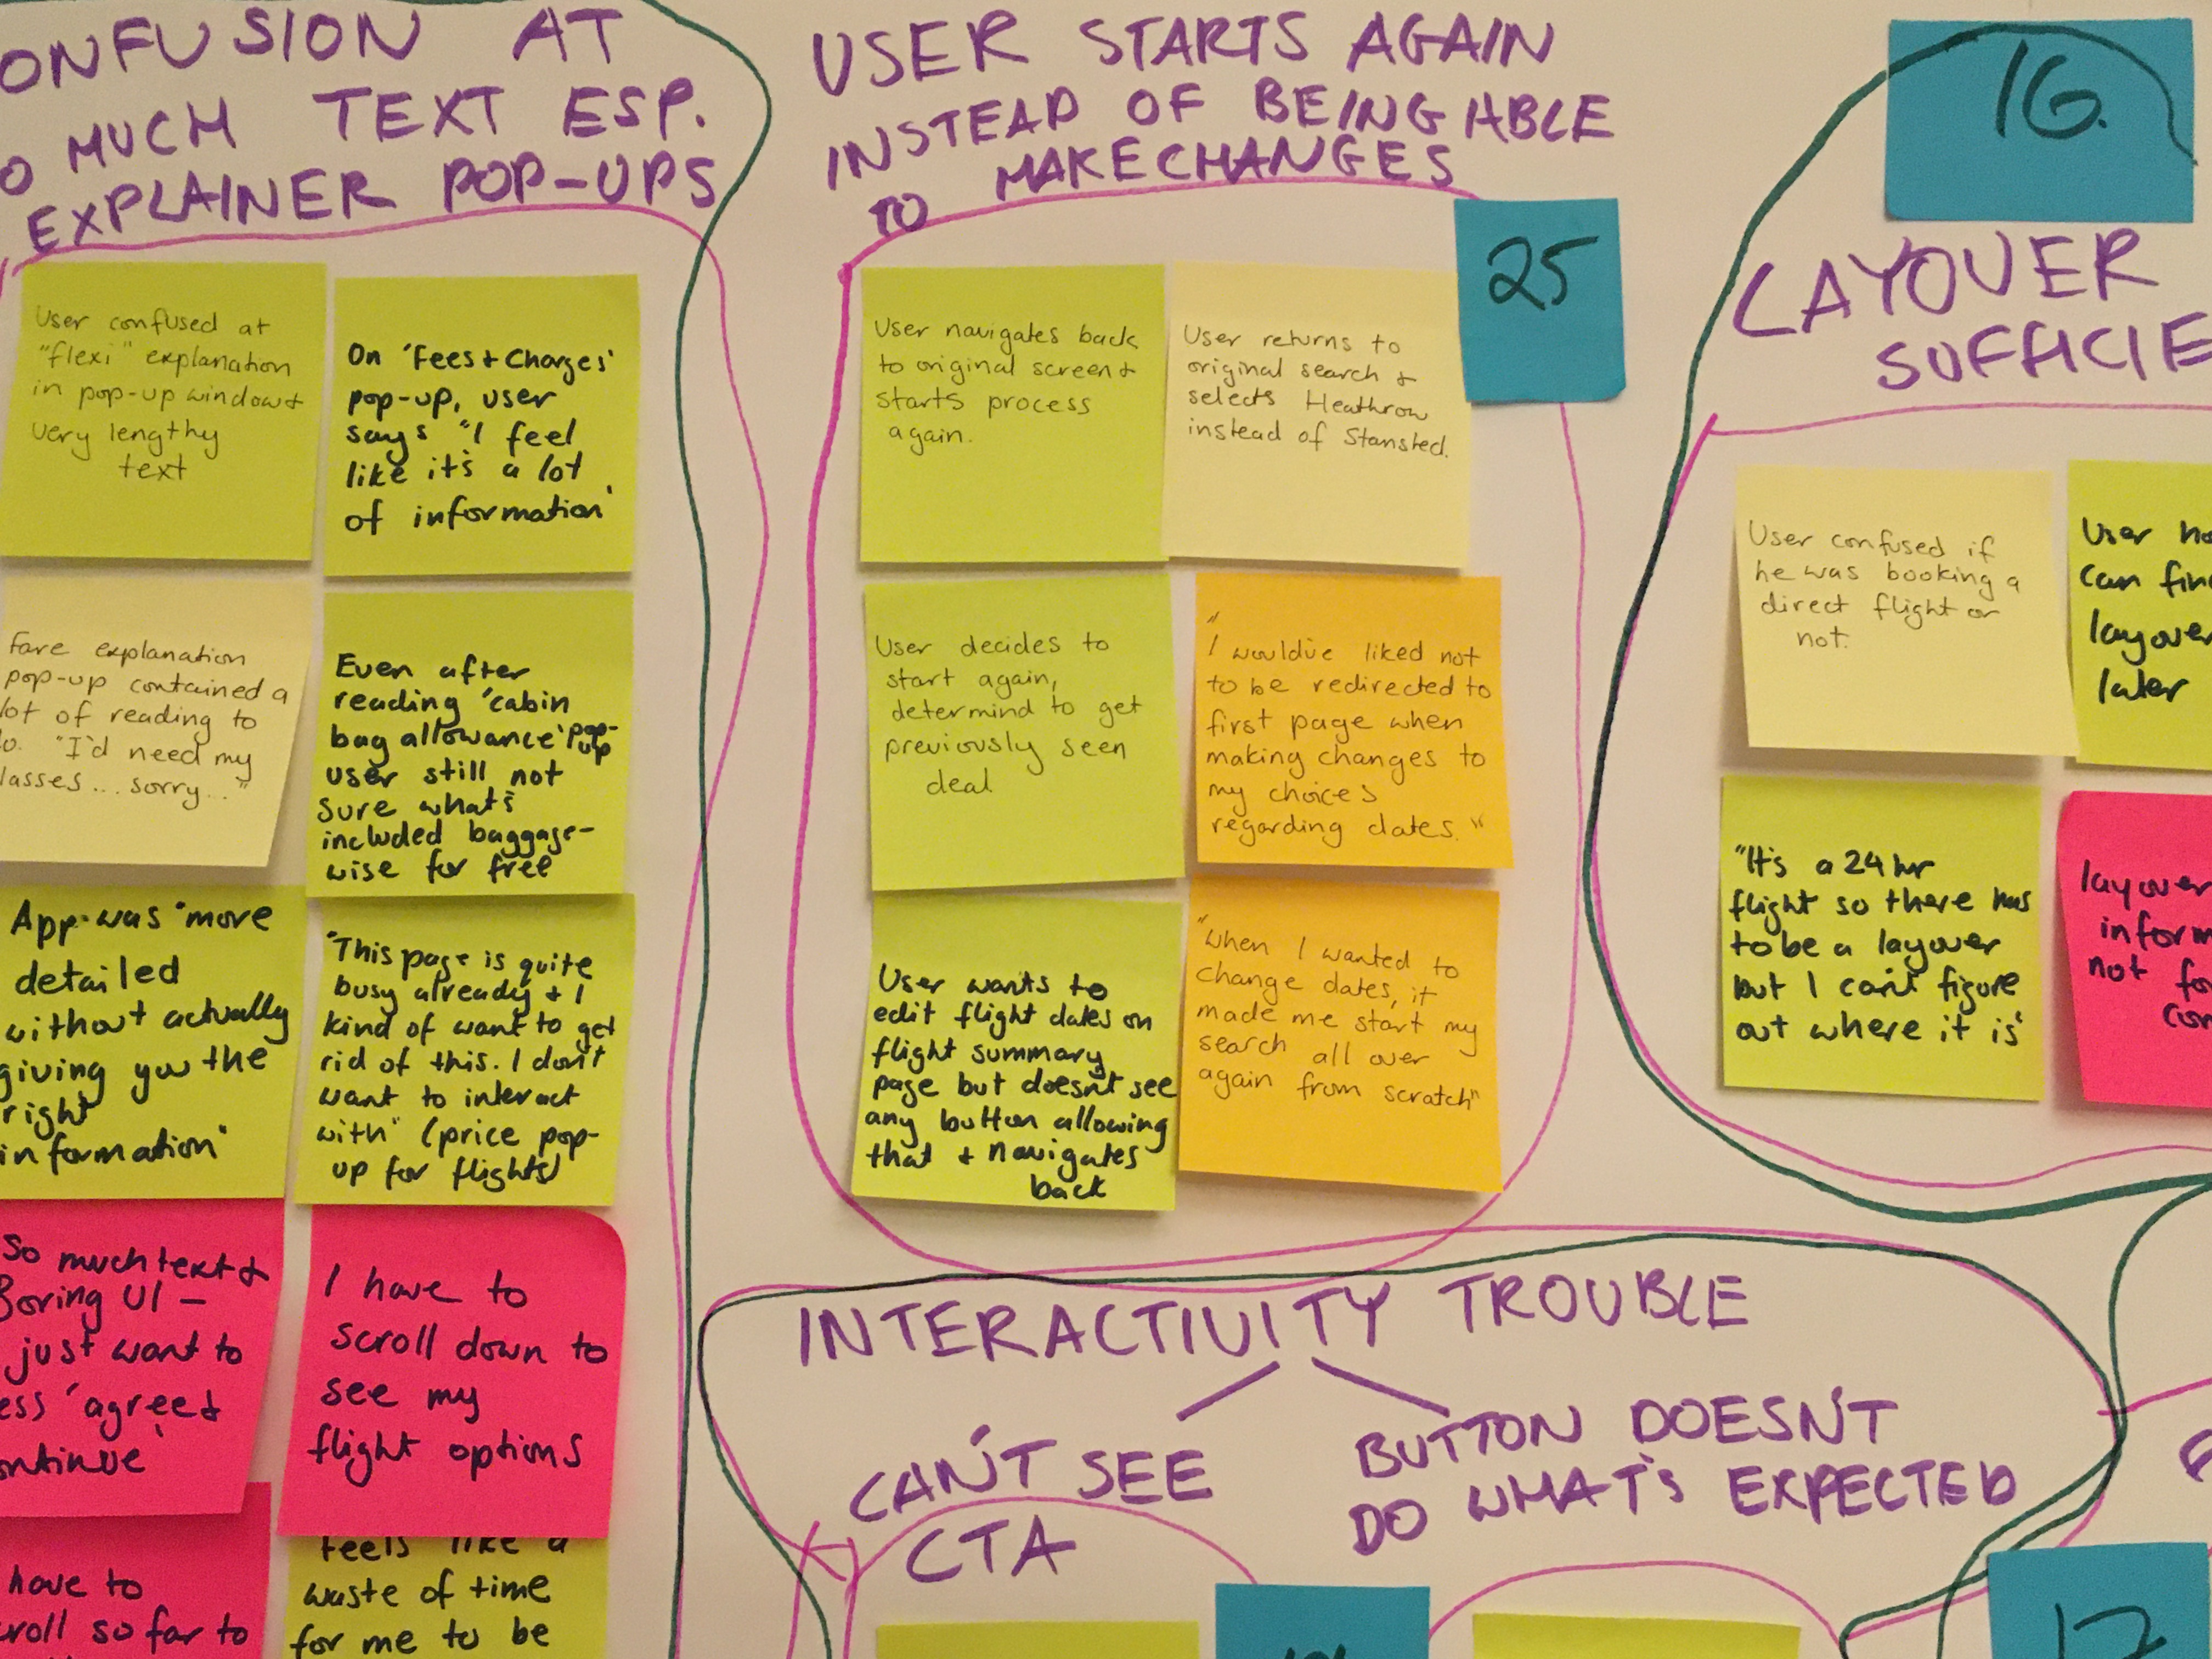 ONFUSION AT
O MUCH TEXT ESP.
EXPLAINER POP-UPS
User confused at
"flexi" explanation
in pop-up window &
very lengthy
text
On 'Fees + Charges'
pop-up, user
says "I feel
like it's a lot
of information'
Fare explanation
pop-up contained a
lot of reading to
do. "I'd need my
lasses... sorry..."
Even after
reading 'cabin
bag allowance' pop-up
user still not
sure what's
included baggage-
wise for free
App was "more
detailed
without actually
giving you the
right
information'
"This page is quite
busy already + I
kind of want to get
rid of this. I don't
want to interact
with" (price pop-
up for flights)
So much text &
Boring UI –
just want to
ess 'agree &
ontinue'
I have to
scroll down to
see my
flight options
have to
roll so far to
feels like a
waste of time
for me to be
USER STARTS AGAIN
INSTEAD OF BEING ABLE
TO MAKE CHANGES
25
User navigates back
to original screen &
starts process
again.
User returns to
original search &
selects Heathrow
instead of Stansted.
User decides to
start again,
determind to get
previously seen
deal
"I would've liked not
to be redirected to
first page when
making changes to
my choices
regarding dates."
User wants to
edit flight dates on
flight summary
page but doesn't see
any button allowing
that + navigates
back
"When I wanted to
change dates, it
made me start my
search all over
again from scratch"
16.
LAYOVER
SUFFICIE
User confused if
he was booking a
direct flight or
not.
User ho
can fin
layover
later
"It's a 24 hr
flight so there has
to be a layover
but I can't figure
out where it is'
layover
inform
not fo
INTERACTIVITY TROUBLE
CAN'T SEE
CTA
BUTTON DOESN'T
DO WHAT'S EXPECTED
17